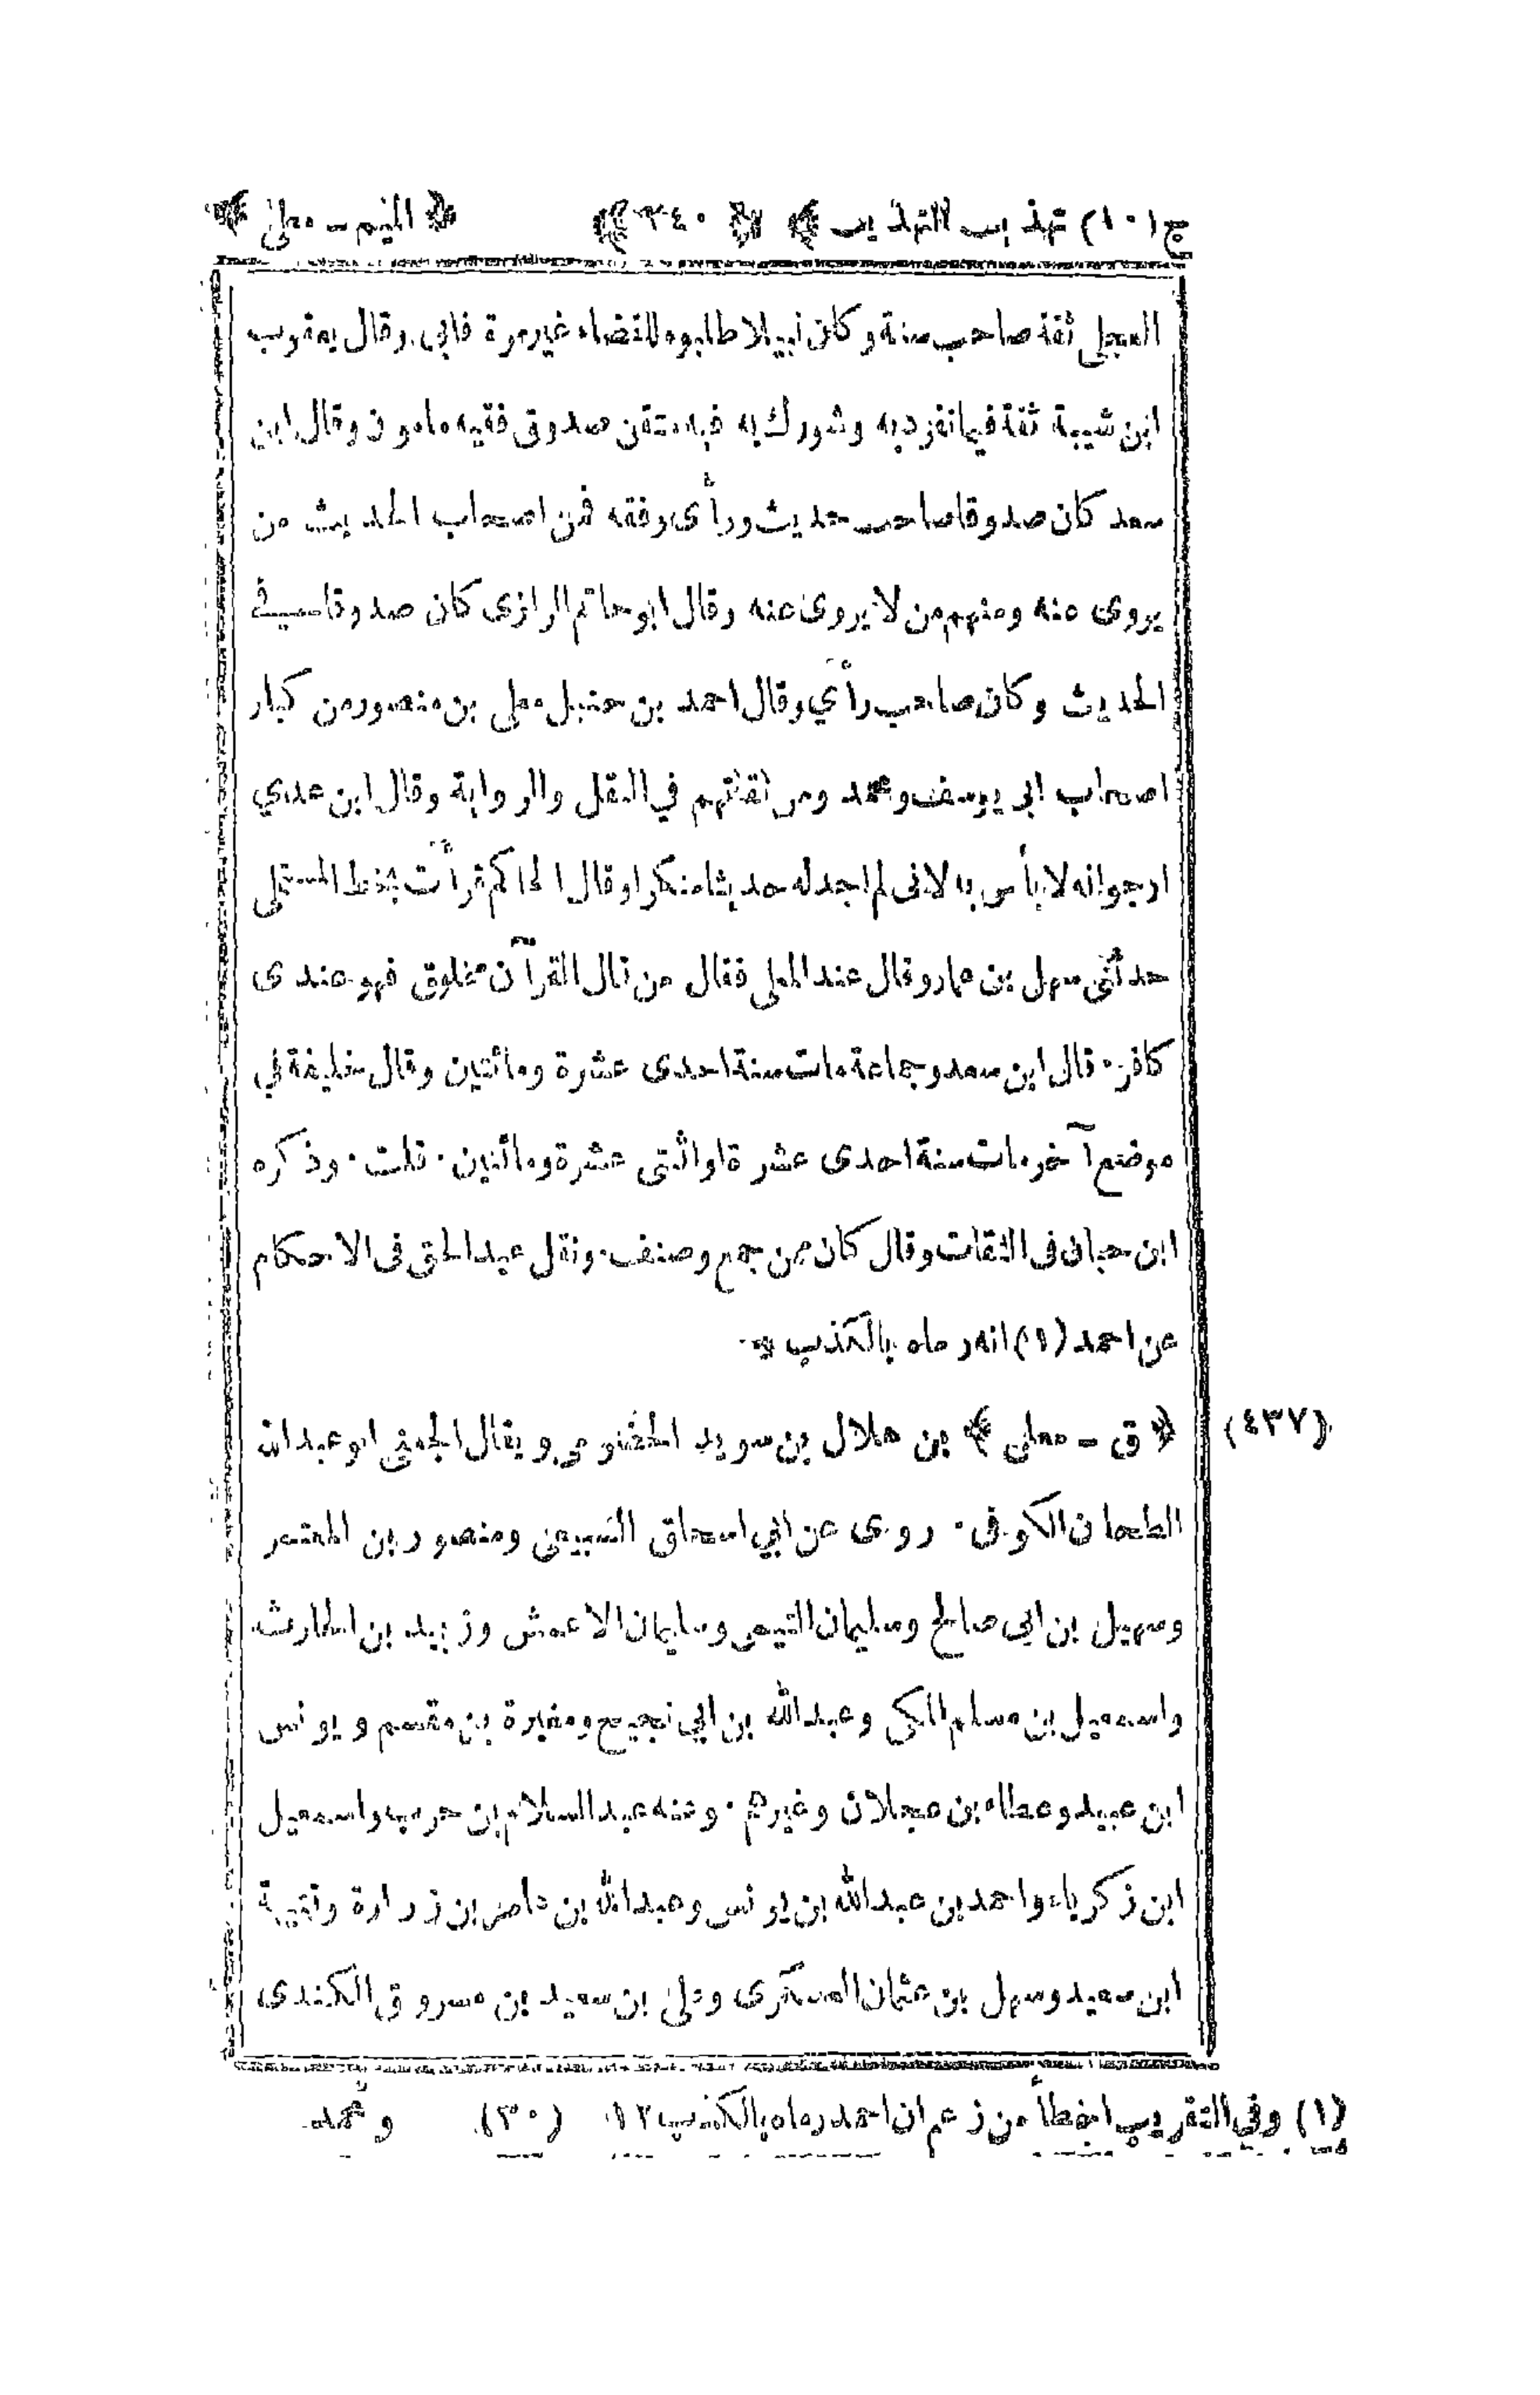 ج(١٠) تهذيب التهذيب ﴾ ﴿ ٢٤٠ ﴾ ﴿ الميم – معلى ﴾
العجلي ثقة صاحب سنة وكان نبيلا طلبوه للقضاء غير مرة فابى. وقال يعقوب
ابن شيبة ثقة فيما تفرد به وشورك به فيه متقن صدوق فقيه مامون وقال ابن
سعد كان صدوقا صاحب حديث ورأى وفقه فمن اصحاب الحديث من
يروى عنه ومنهم من لا يروى عنه وقال ابو حاتم الرازى كان صدوقا في
الحديث وكان صاحب رأي وقال احمد بن حنبل معلى بن منصور من كبار
اصحاب ابى يوسف ومحمد ومن ثقاتهم في النقل والرواية وقال ابن عدي
ارجو انه لا بأس به لانى لم اجد له حديثا منكرا وقال الحاكم قرأت بخط المستملى
حدثنى سهل بن عمار وقال عند المعلى فقال من قال القرآن مخلوق فهو عندى
كافر · قال ابن سعد وجماعة مات سنة احدى عشرة ومائتين وقال خليفة في
موضع آخر مات سنة احدى عشرة او اثنتى عشرة ومائتين · قلت · وذكره
ابن حبان فى الثقات وقال كان ممن جمع وصنف · ونقل عبد الحق فى الاحكام
عن احمد (١) انه رماه بالكذب *
(٤٣٧) ﴿ ق – معلى ﴾ بن هلال بن سويد الحضرمي ويقال الجعفى ابو عبد الله
الطحان الكوفى · روى عن ابي اسحاق السبيعى ومنصور بن المعتمر
وسهيل بن ابى صالح وسليمان التيمى وسليمان الاعمش وزبيد بن الحارث
واسمعيل بن مسلم المكى وعبد الله بن ابي نجيح ومغيرة بن مقسم ويونس
ابن عبيد وعطاء بن عجلان وغيرهم · وعنه عبد السلام بن حرب واسمعيل
ابن زكرياء واحمد بن عبد الله بن يونس وعبد الله بن عامر بن زرارة وقتيبة
ابن سعيد وسهل بن عثمان العسكرى وعلى بن سعيد بن مسروق الكندى
(١) وفي التقريب اخطأ من زعم ان احمد رماه بالكذب ١٢ (٣٠) ومحمد